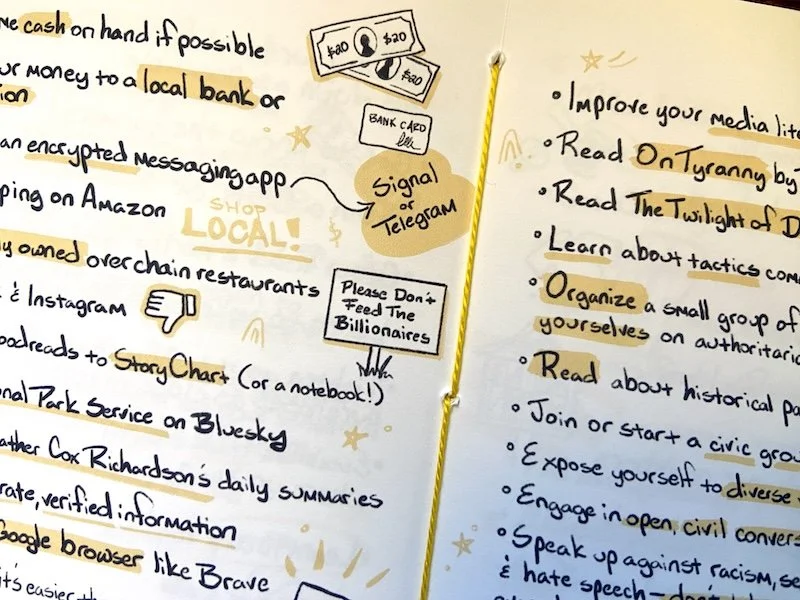 cash on hand if possible
$20 $20
$20
money to a local bank or
BANK CARD
an encrypted messaging app
Signal
or
Telegram
on Amazon
SHOP
LOCAL!
$
owned over chain restaurants
Please Don't
Feed The
Billionaires
& Instagram
to StoryChart (or a notebook!)
Park Service on Bluesky
Cox Richardson's daily summaries
verified information
Google browser like Brave
it's easier
• Improve your media
• Read On Tyranny by
• Read The Twilight of
• Learn about tactics
• Organize a small group of
yourselves on
• Read about historical
• Join or start a civic
• Expose yourself to diverse
• Engage in open, civil
• Speak up against racism,
& hate speech —